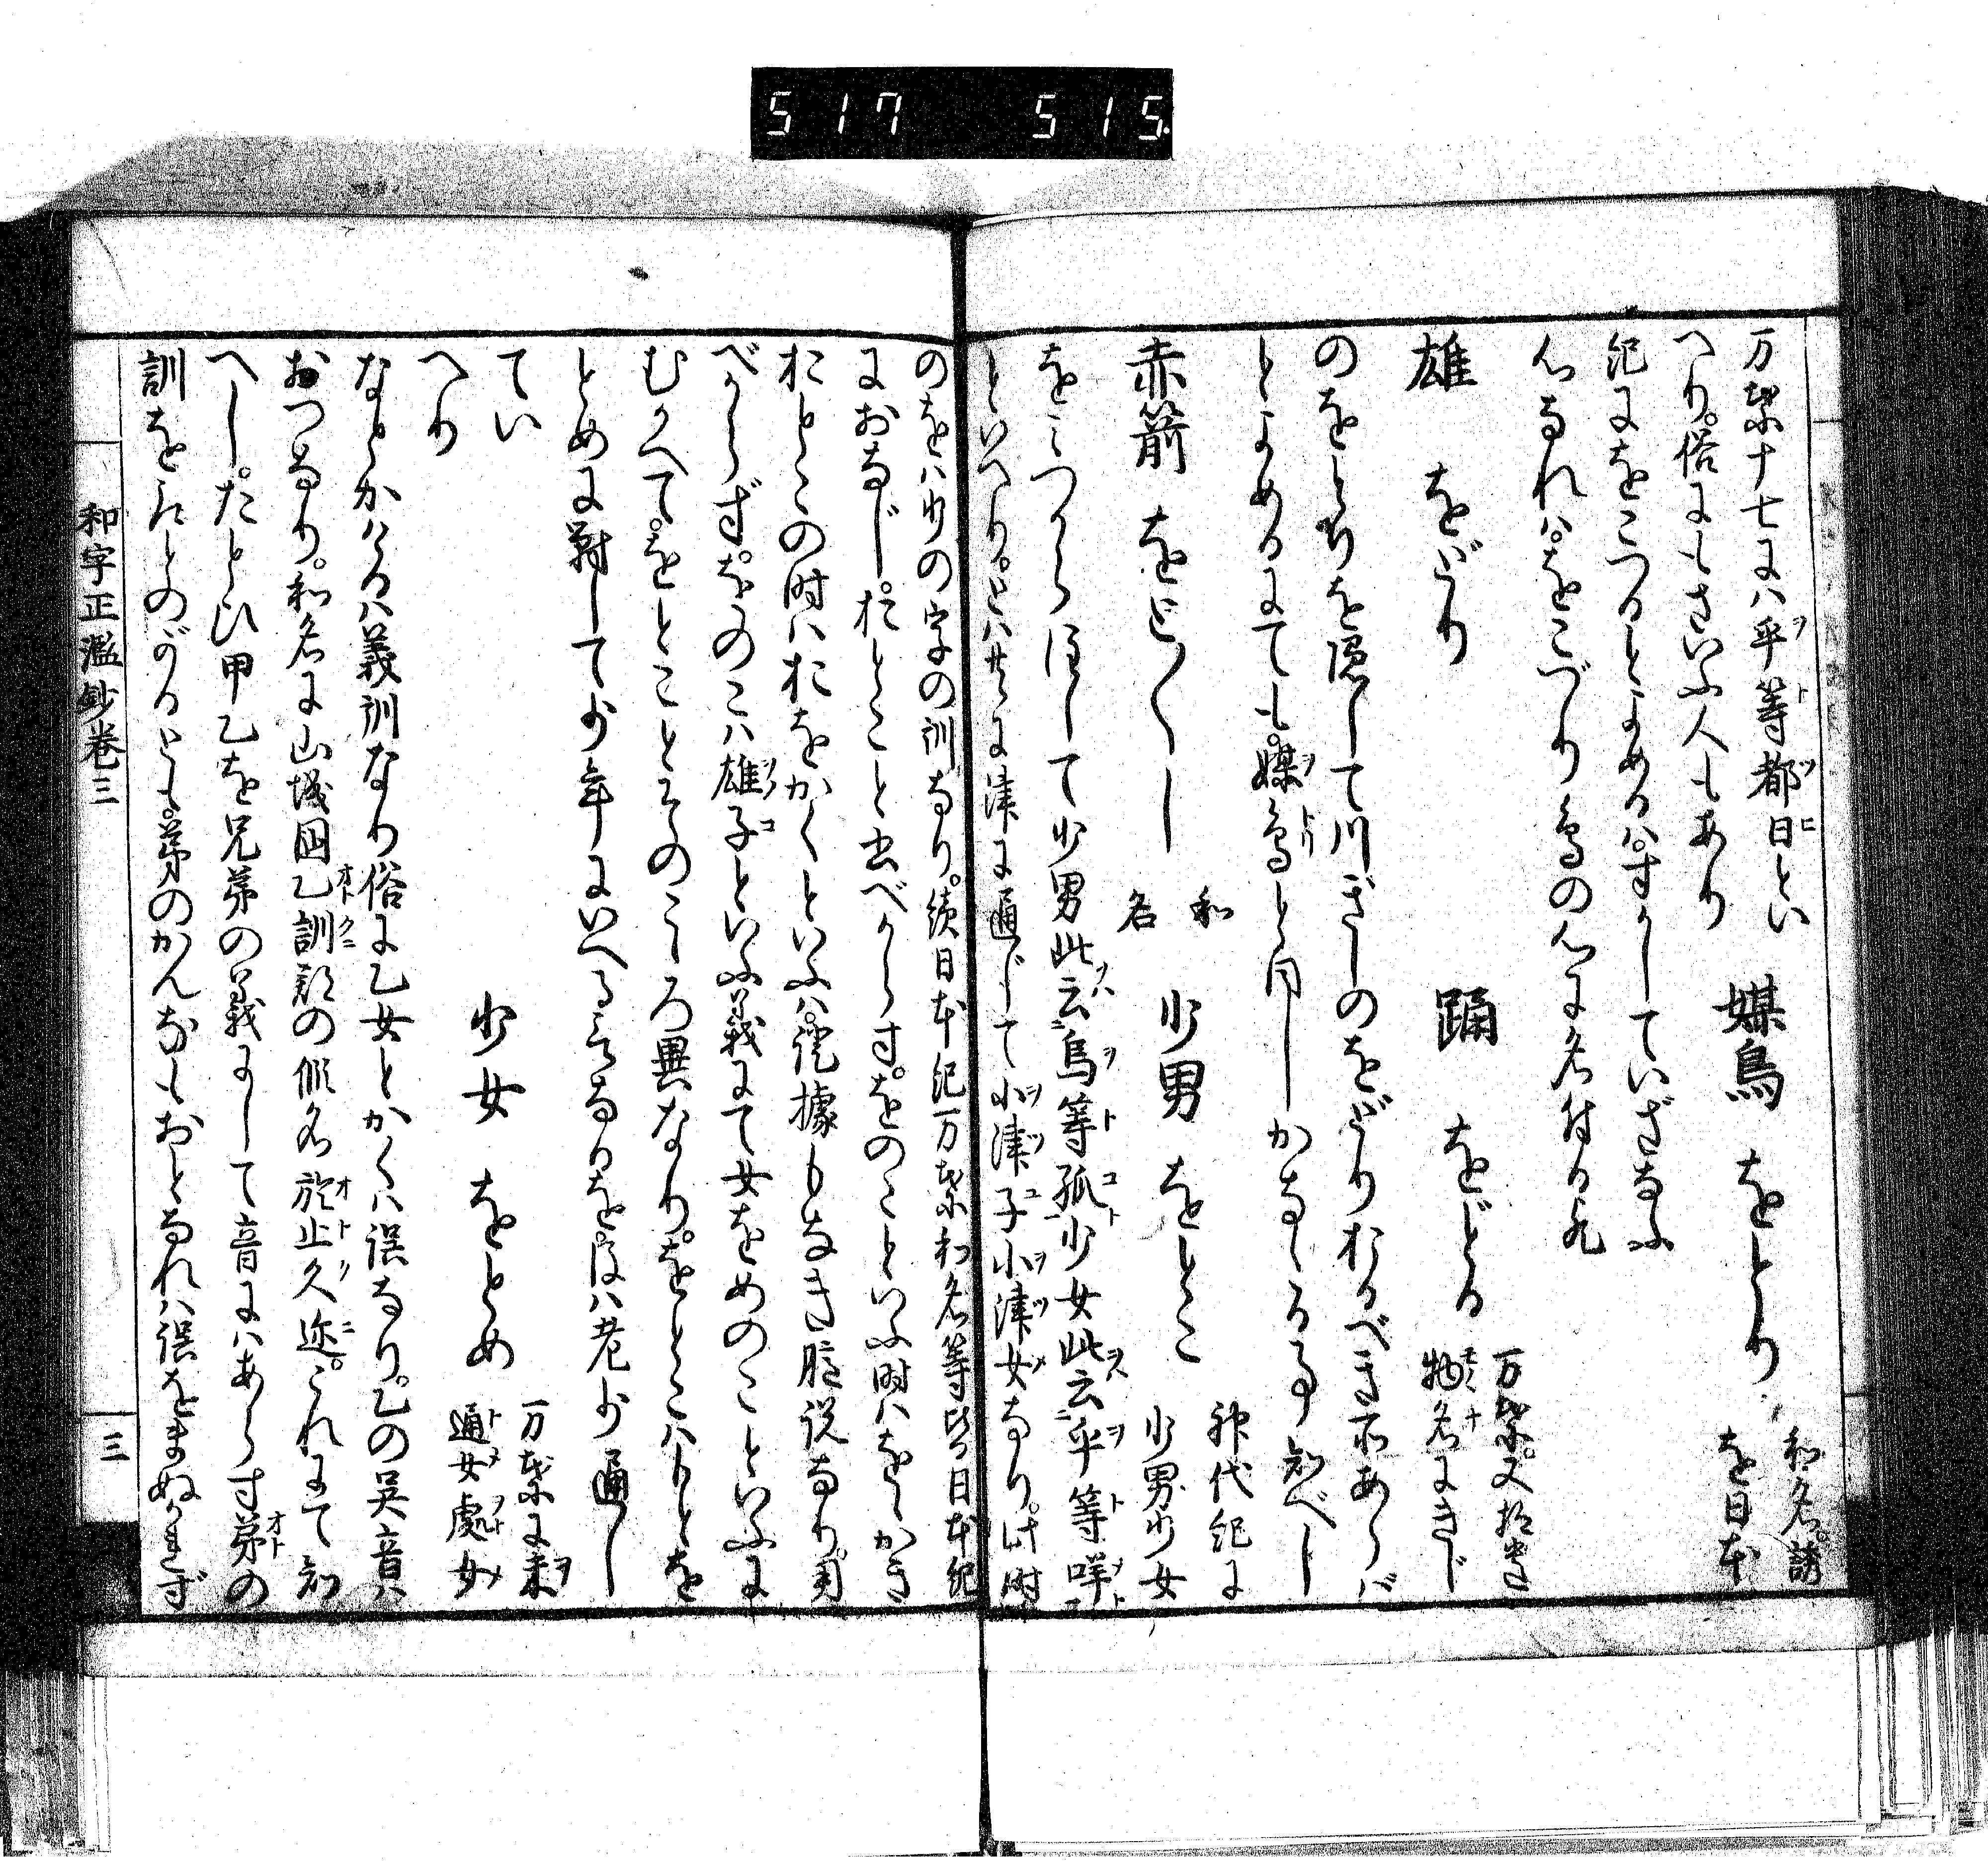 517 515.
万葉十七にハ乎等都日とい
へり。俗にもさいふ人もあり
媒鳥 をとり 和名。誘
を日本
紀にをこつるとよめるハ。すかしていざなふ
心なれハ。をこづり鳥の心に名付る
雄 をどり
踊 をどる 万葉。又拾遺
物名にきじ
のをとりを隠して川ぎしのをどりおるべき所あらバ
とよめるにても。媒鳥と同しかなゝる事知べし
赤箭 をとをとし 和
名
少男 をとこ 神代紀に
少男少女
をこつから注して少男此云烏等孤少女此云乎等咩
といへり。とハ共に津に通じて小津子小津女なり。此時
のをハ少の字の訓なり。続日本紀万葉和名等皆日本紀
におなじ。おとこと書べからす。をのことといふ時ハをゝかき
おとこの時ハおをかくといふハ。證據もなき臆説なり。用
べからず。をのこハ雄子といふ義にて女をめのこといふに
むかへて。をとことそのこゝろ異なり。をとこハもとを
とめに對して少年にいへるなるを。後ハ老少通し
てい
へり
少女 をとめ 万葉に未
通女處女
なとかけるハ義訓なり俗に乙女とかくハ誤なり。乙の呉音ハ
おつなり。和名に山城国乙訓郡の假名於止久迩。これにて知
へし。たとひ甲乙を兄弟の義にして音にハあらす弟の
訓をおとのがるとも。弟のかんなもおとなれハ誤をまぬかれず
和字正濫鈔巻三
三